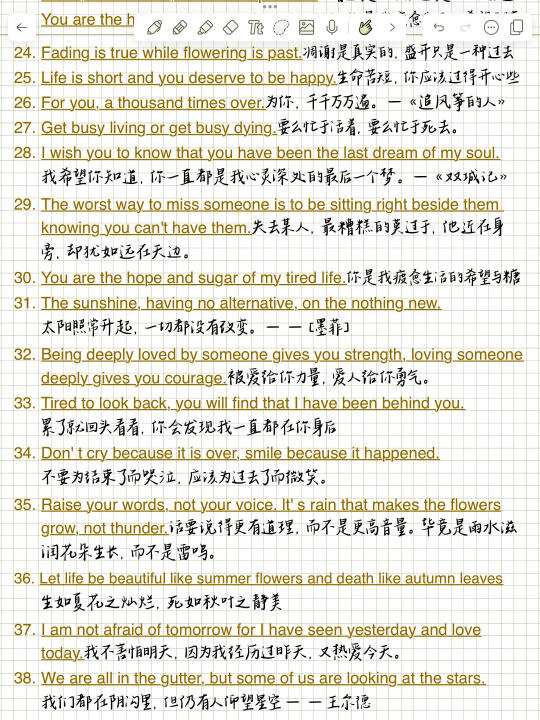 You are the h
24. Fading is true while flowering is past.凋谢是真实的, 盛开只是一种过去
25. Life is short and you deserve to be happy.生命苦短, 你应该过得开心些
26. For you, a thousand times over.为你, 千千万万遍。—《追风筝的人》
27. Get busy living or get busy dying.要么忙于活着, 要么忙于死去。
28. I wish you to know that you have been the last dream of my soul.
我希望你知道, 你一直都是我心灵深处的最后一个梦。—《双城记》
29. The worst way to miss someone is to be sitting right beside them
knowing you can't have them.失去某人, 最糟糕的莫过于, 他近在身
旁, 却犹如远在天边。
30. You are the hope and sugar of my tired life.你是我疲惫生活的希望与糖
31. The sunshine, having no alternative, on the nothing new.
太阳照常升起, 一切都没有改变。— — [墨菲]
32. Being deeply loved by someone gives you strength, loving someone
deeply gives you courage.被爱给你力量, 爱人给你勇气。
33. Tired to look back, you will find that I have been behind you.
累了就回头看看, 你会发现我一直都在你身后
34. Don' t cry because it is over, smile because it happened.
不要为结束了而哭泣, 应该为过去了而微笑。
35. Raise your words, not your voice. It' s rain that makes the flowers
grow, not thunder.话要说得更有道理, 而不是更高音量。毕竟是雨水滋
润花朵生长, 而不是雷鸣。
36. Let life be beautiful like summer flowers and death like autumn leaves
生如夏花之灿烂, 死如秋叶之静美
37. I am not afraid of tomorrow for I have seen yesterday and love
today.我不害怕明天, 因为我经历过昨天, 又热爱今天。
38. We are all in the gutter, but some of us are looking at the stars.
我们都在阴沟里, 但仍有人仰望星空 — — 王尔德